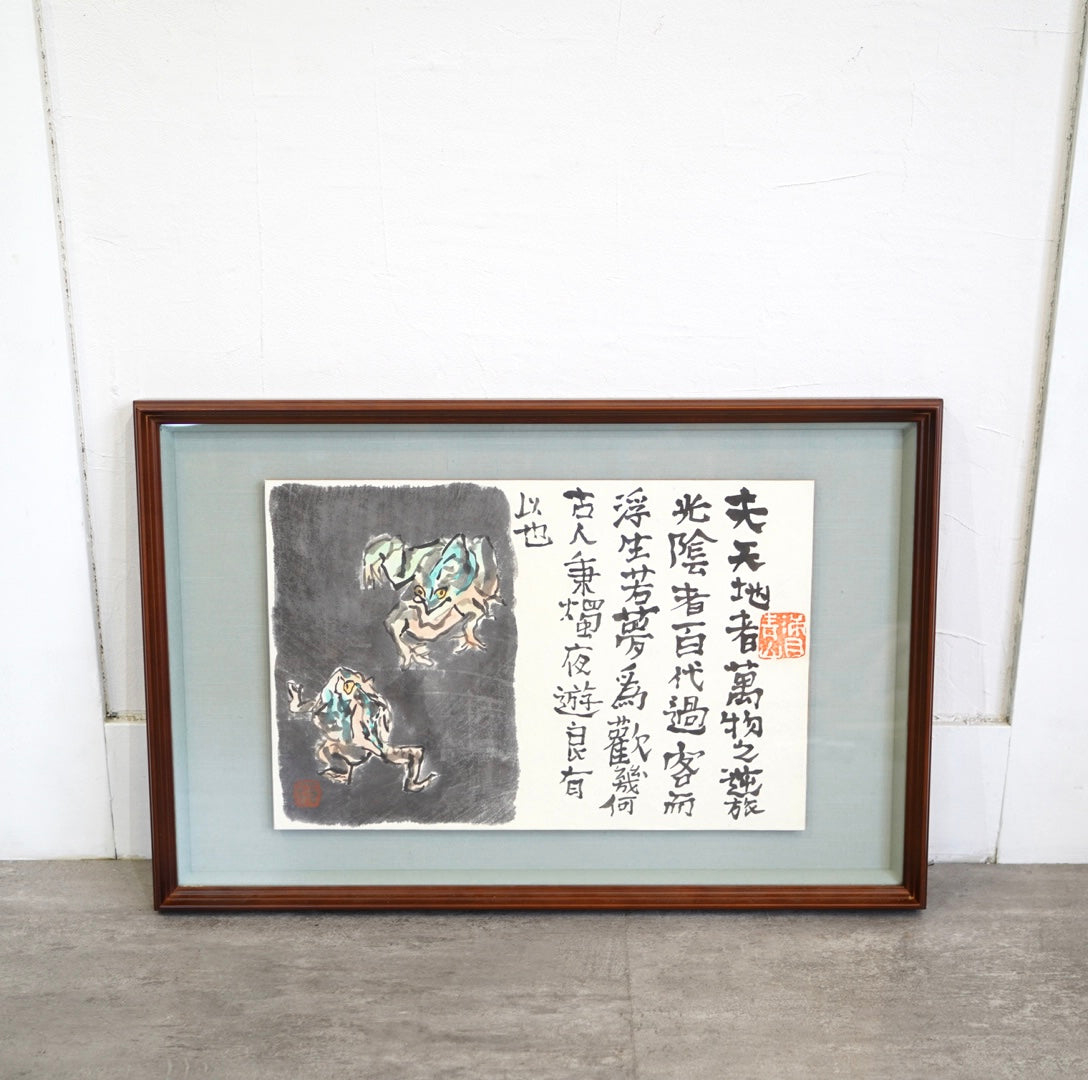 夫天地者萬物之逆旅
光陰者百代過客而
浮生若夢爲歡幾何
古人秉燭夜遊良有
以也
滿目
青山